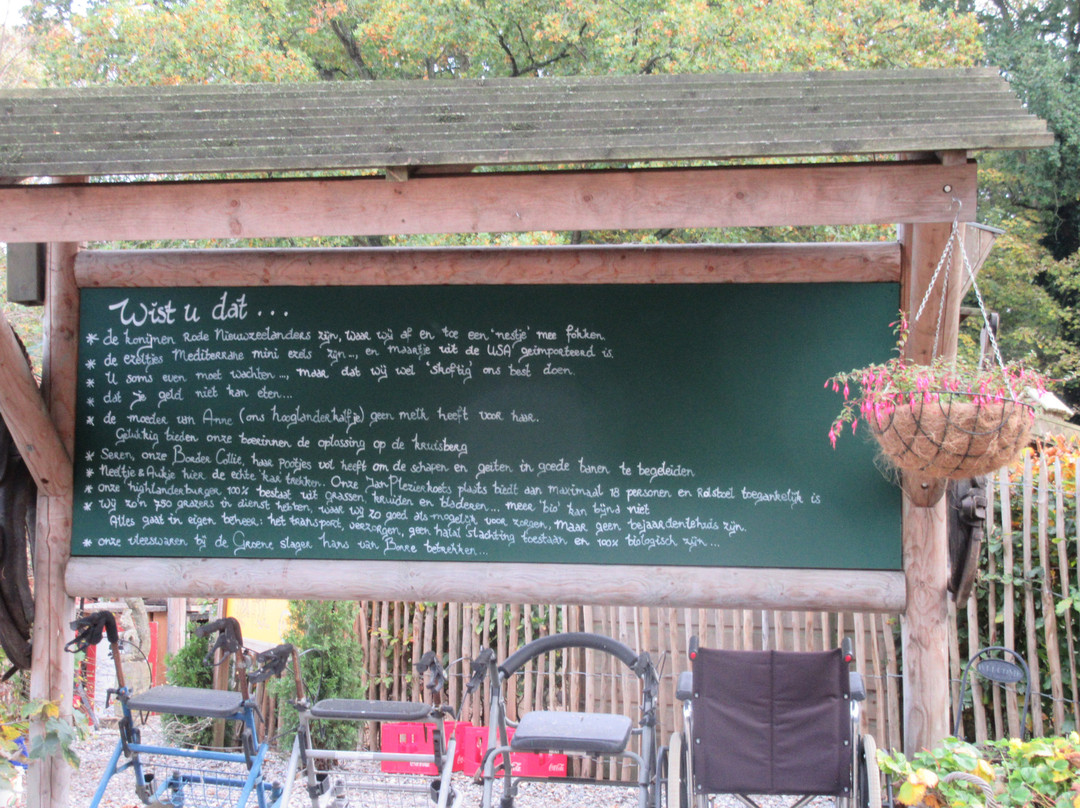 Wist u dat...
* de konijnen Rode Nieuwzeelanders zijn, waar wij af en toe een 'nestje' mee fokken.
* de ezeltjes Mediterrane mini ezels zijn..., en Maartje uit de USA geïmporteerd is.
* U soms even moet wachten..., maar dat wij wel 'skoftig' ons best doen.
* dat je geld niet kan eten...
* de moeder van Anne (ons hooglanderkalfje) geen melk heeft voor haar.
Gelukkig bieden onze boerinnen de oplossing op de kruisberg
* Seren, onze Border Collie, haar pootjes vol heeft om de schapen en geiten in goede banen te begeleiden
* Neeltje & Aukje hier de echte kar trekken. Onze Jan Plezierkoets plaats biedt aan maximaal 18 personen en Rolstoel toegankelijk is
* onze 'highlanderburger' 100% bestaat uit grassen, kruiden en bladeren.... meer 'bio' kan bijna niet
* wij zo'n 750 grazers in dienst hebben, waar wij zo goed als mogelijk voor zorgen, maar geen bejaardentehuis zijn.
Alles gaat in eigen beheer: het transport, verzorgen, geen halal slachting toestaan en 100% biologisch zijn...
* onze vleeswaren bij de Groene slager hans van Borre betrekken...
WELCOME